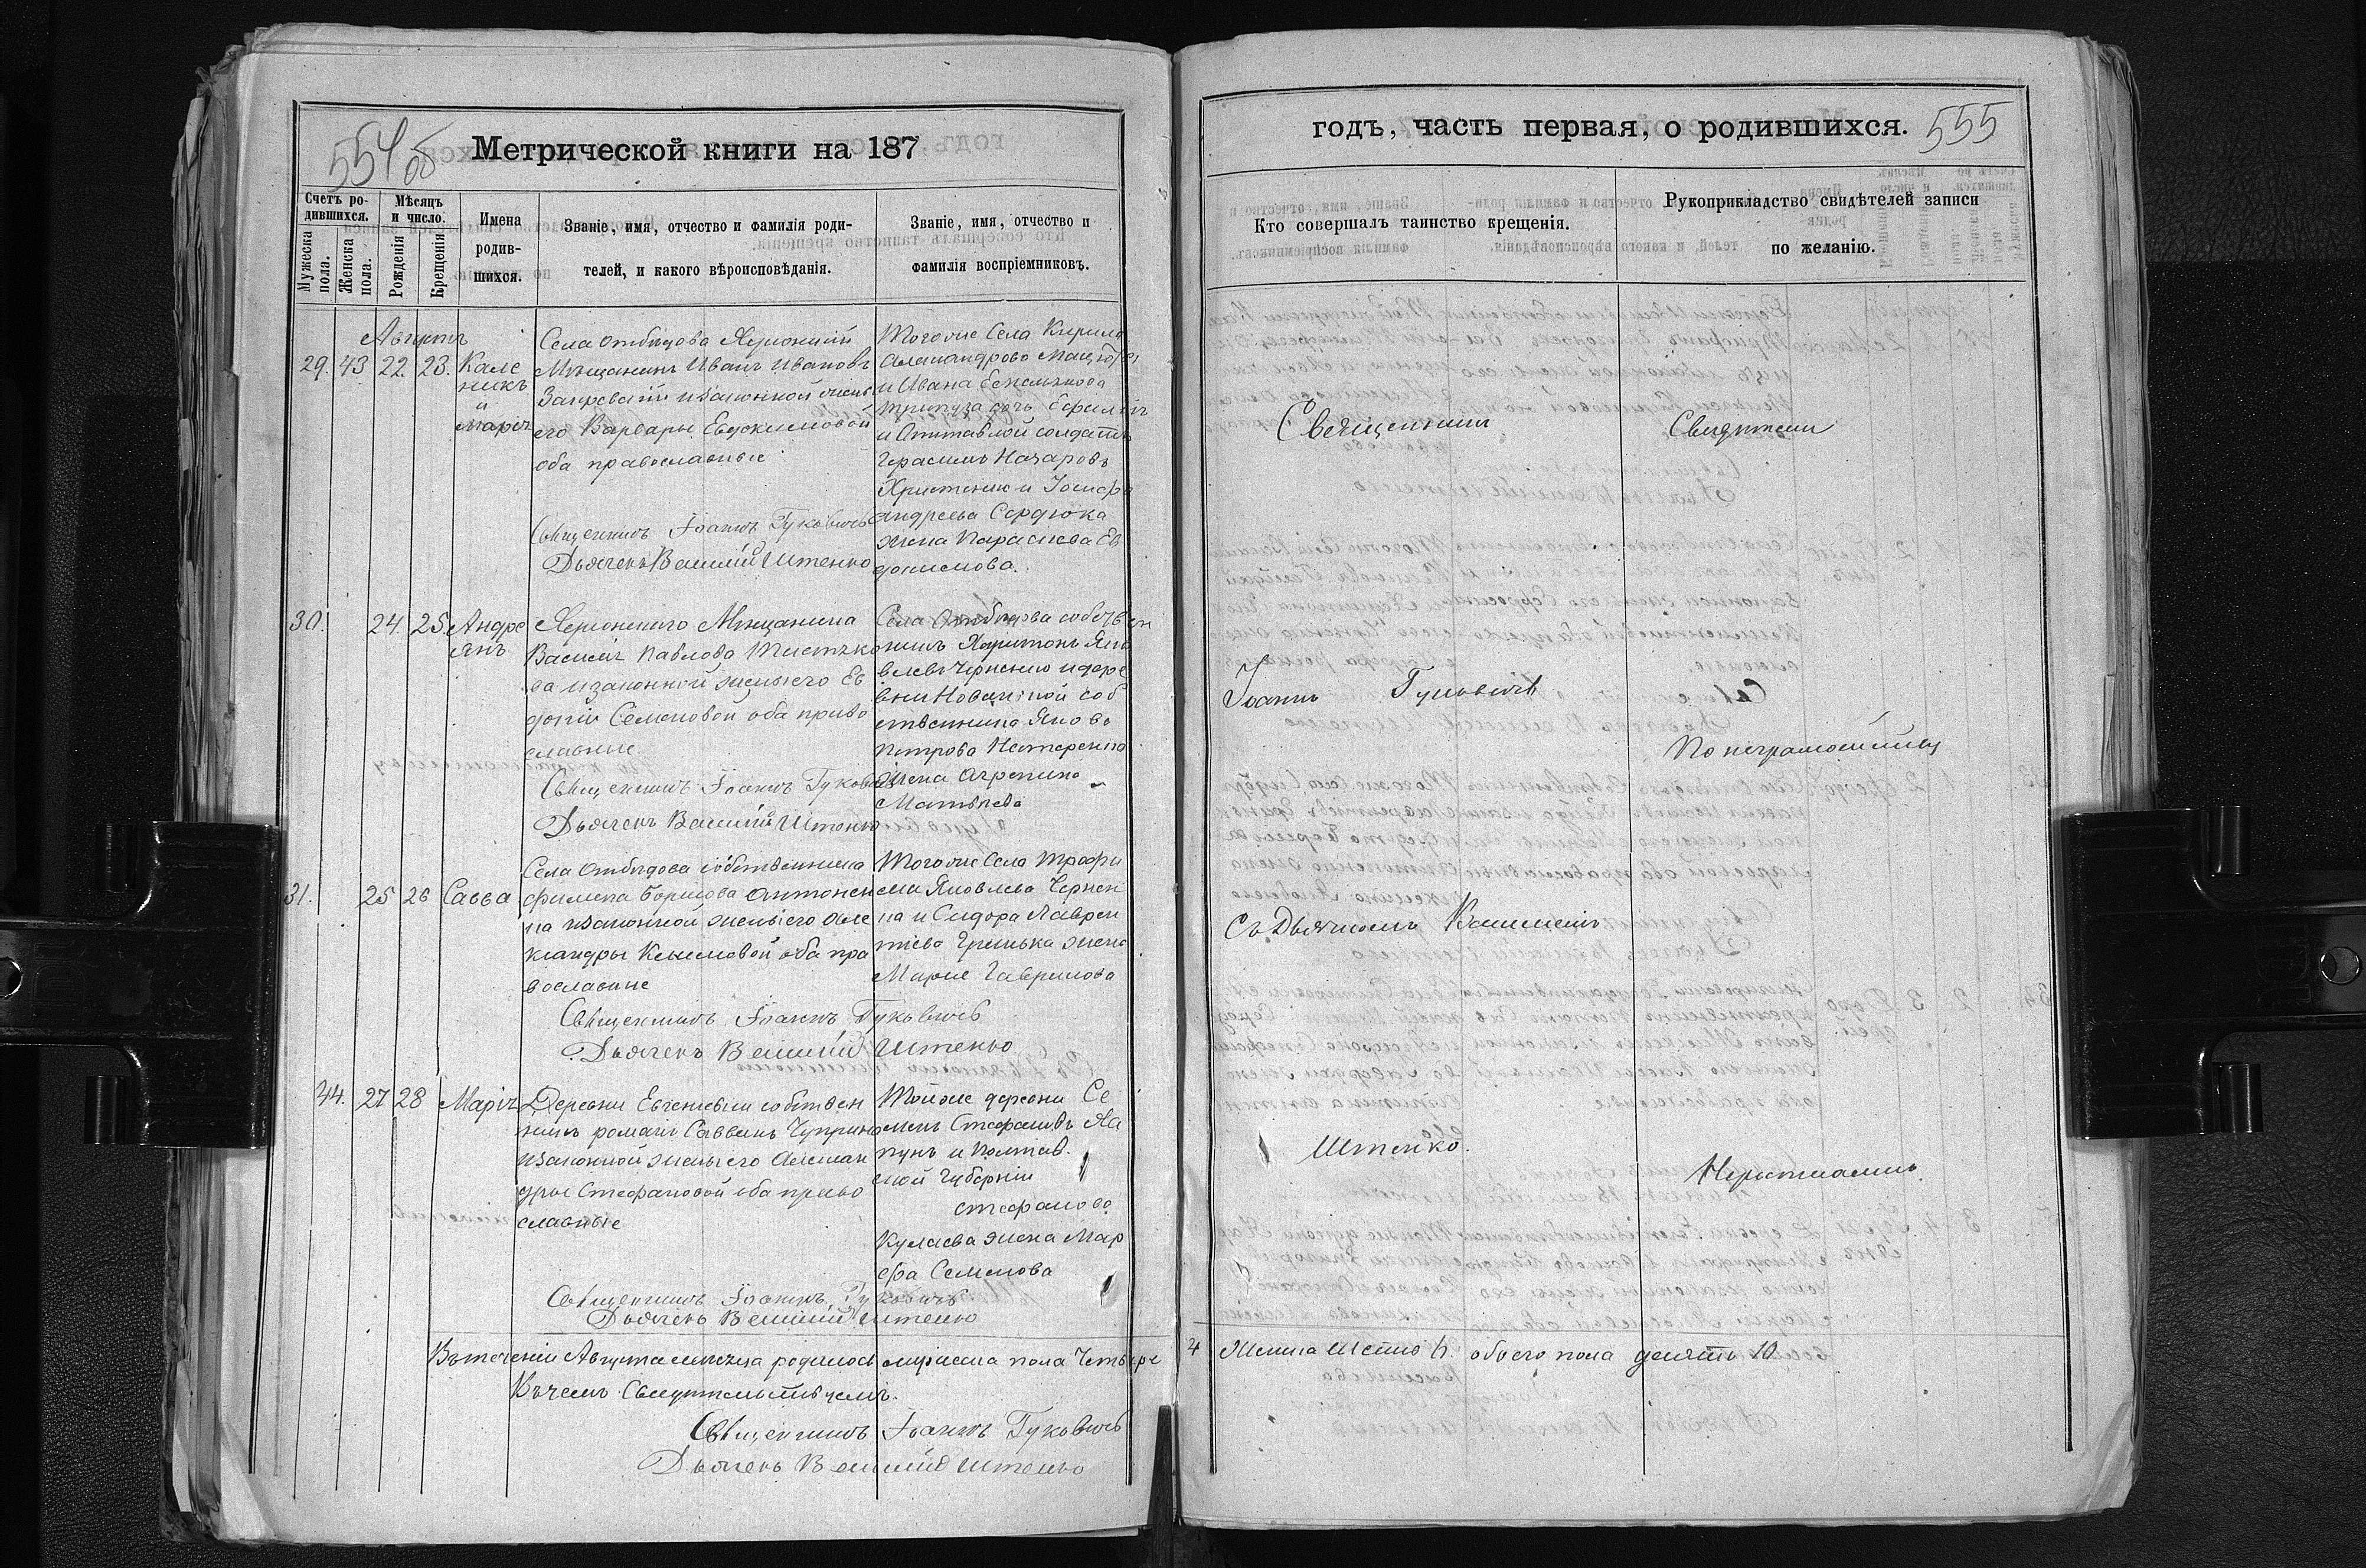 554 об
Метрической книги на 187
Счетъ ро-
дившихся.
Мужеска
пола.
Женска
пола.
Мѣсяцъ
и число.
Рожденія
Крещенія
Имена
родив-
шихся.
Званіе, имя, отчество и фамилія роди-
телей, и какого вѣроисповѣданія.
Званіе, имя, отчество и
фамилія воспріемниковъ.
Августъ
29. 43 22. 23.
Кале
никъ
и
Марія
Села Отбѣдова Херсонскій
Мѣщанинъ Иванъ Ивановъ
и законной жены
его Варвары Евдокимовой
оба православные
Священникъ Іоаннъ Гуковичъ
Дьячекъ Василій Штенко
Тогоже Села Кирила
и Ивана
и Отставной солдатъ
Герасимъ Назаровъ
Христенко и Іосифа
Андреева Сердюка
жена Параскева Ев
докимова.
30. 24. 25.
Андре
янъ
Херсонскаго Мѣщанина
Василія Павлова
и законной жены его Ев
докіи Семеновой оба право
славные
Священникъ Іоаннъ Гуковичъ
Дьячекъ Василій Штенко
Села Отбѣдова собствен
никъ Харитонъ Яко
влевъ Черненко и дере
вни соб
ственника Якова
Петрова Нестеренка
жена Агрепина
Матвѣева
31. 25 26 Савва
Села Отбѣдова собственника
Филипа Борисова Антонен
ка и законной жены его Але
ксандры Климовой оба пра
вославные
Священникъ Іоаннъ Гуковичъ
Дьячекъ Василій Штенко
Тогоже Села Трофи
ма Яковлева Чернен
ка и Сидора Лаврен
тіева Гринька жена
Марія Гаврилова
44. 27 28 Марія
Деревни Евгеневки собствен
никъ Романъ Саввинъ Чуприна
и законной жены его Алексан
дры Стефановой оба право
славные
Священникъ Іоаннъ Гуковичъ
Дьячекъ Василій Штенко
Тойже деревни Се
менъ Стефановъ Ла
пунъ и Полтав.
ской Губерніи
Стефанова
Кулаева жена Мар
фа Семенова
Въ теченіи Августа мѣсяца родилось мужеска пола Четыре
Въ чемъ Свидѣтельствуемъ.
Священникъ Іоаннъ Гуковичъ
Дьячекъ Василій Штенко
годъ, часть первая, о родившихся. 555
Кто совершалъ таинство крещенія.
Рукоприкладство свидѣтелей записи
по желанію.
Священникъ
Іоаннъ Гуковичъ
Съ Дьячкомъ Василіемъ
Штенко.
Свидѣтели
По неграмотству
4 Женска Шесть 6. обоего пола десять 10